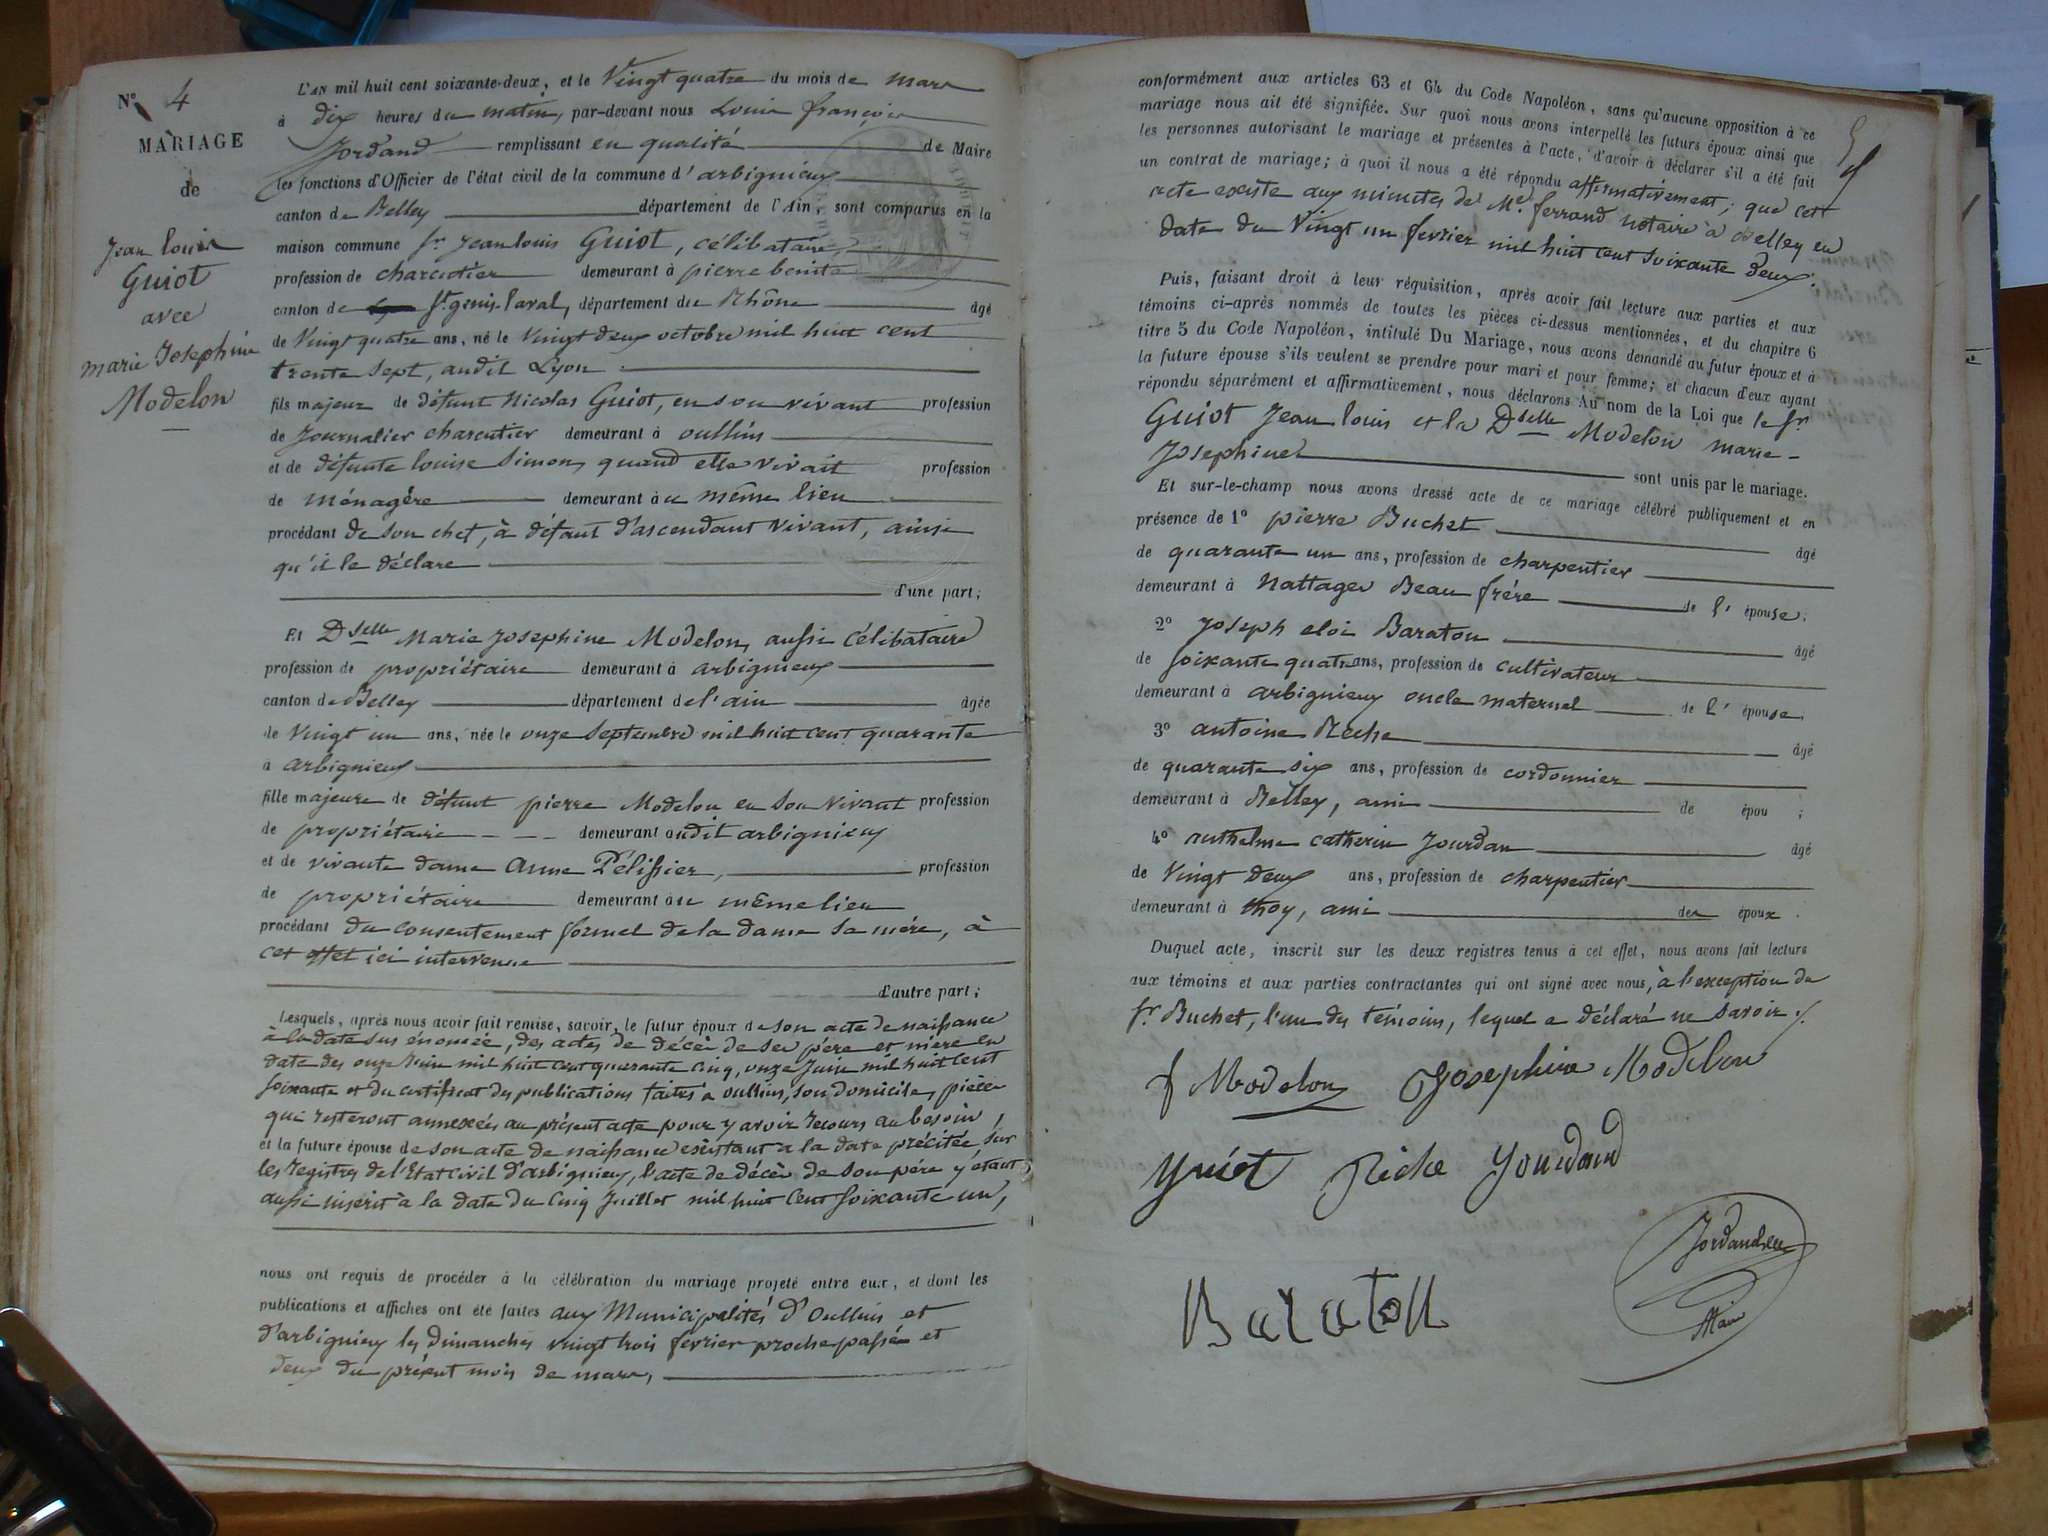 N° 4
MARIAGE
de
Jean louis
Guiot
avec
marie Josephine
Modelon
L'AN mil huit cent soixante-deux, et le Vingt quatre du mois de mars
à dix heures du matin, par-devant nous Louis françois
Jordand remplissant en qualité de Maire
les fonctions d'Officier de l'état civil de la commune d'arbignieux
canton de Belley département de l'Ain, sont comparus en la
maison commune Sr Jean louis Guiot, célibataire,
profession de charcutier demeurant à pierre benite
canton de St genis-laval, département du Rhône âgé
de Vingt quatre ans, né le Vingt deux octobre mil huit cent
trente sept, audit Lyon
fils majeur de défunt Nicolas Guiot, en son vivant profession
de Journalier charcutier demeurant à oullins
et de défunte louise Simon, quand elle vivait profession
de ménagère demeurant au même lieu
procédant de son chef, à défaut d'ascendant vivant, ainsi
qu'il le déclare
d'une part;
Et Dselle Marie Josephine Modelon, aussi célibataire
profession de propriétaire demeurant à arbignieux
canton de Belley département de l'ain âgée
de Vingt un ans, née le onze Septembre mil huit cent quarante
à arbignieux
fille majeure de défunt pierre Modelon en son vivant profession
de propriétaire demeurant audit arbignieux
et de vivante dame Anne Pélissier, profession
de propriétaire demeurant au même lieu
procédant du consentement formel de la dame sa mère, à
cet effet ici intervenue
d'autre part;
Lesquels, après nous avoir fait remise, savoir, le futur époux de son acte de naissance
à la date sus énoncée, des actes de décès de ses père et mère en
date des onze Juin mil huit cent quarante cinq, onze Juin mil huit cent
soixante et du certificat des publications faites à oullins, son domicile, pièces
qui resteront annexées au présent acte pour y avoir recours au besoin,
et la future épouse de son acte de naissance existant à la date précitée sur
les registres de l'Etat Civil d'arbignieux, l'acte de décès de son père y étant
aussi inscrit à la date du Cinq Juillet mil huit cent soixante un,
nous ont requis de procéder à la célébration du mariage projeté entre eux, et dont les
publications et affiches ont été faites aux Municipalités d'Oullins et
d'arbignieux les dimanches vingt trois fevrier proche passé et
deux du présent mois de mars,
conformément aux articles 63 et 64 du Code Napoléon, sans qu'aucune opposition à ce
mariage nous ait été signifiée. Sur quoi nous avons interpellé les futurs époux ainsi que
les personnes autorisant le mariage et présentes à l'acte, d'avoir à déclarer s'il a été fait
un contrat de mariage; à quoi il nous a été répondu affirmativement; que cet
acte existe aux minutes de Me ferrand notaire à Belley en
date du Vingt un fevrier mil huit cent soixante deux.
Puis, faisant droit à leur réquisition, après avoir fait lecture aux parties et aux
témoins ci-après nommés de toutes les pièces ci-dessus mentionnées, et du chapitre 6
titre 5 du Code Napoléon, intitulé Du Mariage, nous avons demandé au futur époux et à
la future épouse s'ils veulent se prendre pour mari et pour femme; et chacun d'eux ayant
répondu séparément et affirmativement, nous déclarons Au nom de la Loi que le Sr
Guiot Jean louis et la Dselle Modelon marie-
Josephine sont unis par le mariage.
Et sur-le-champ nous avons dressé acte de ce mariage célébré publiquement et en
présence de 1° pierre Buchet âgé
de quarante un ans, profession de charpentier
demeurant à Nattages Beau frère de l'épouse.
2° Joseph eloi Baraton âgé
de soixante quatre ans, profession de cultivateur
demeurant à arbignieux oncle maternel de l'épouse,
3° antoine Riche âgé
de quarante six ans, profession de cordonnier
demeurant à Belley, ami de épou ;
4° anthelme catherin Jourdan âgé
de Vingt deux ans, profession de charpentier
demeurant à thoy, ami des époux.
Duquel acte, inscrit sur les deux registres tenus à cet effet, nous avons fait lecture
aux témoins et aux parties contractantes qui ont signé avec nous, à l'exception du
Sr Buchet, l'un des témoins, lequel a déclaré ne savoir ./.
f Modelon Josephine Modelon
Guiot Riche Jourdand
Baraton
Jordand
Maire